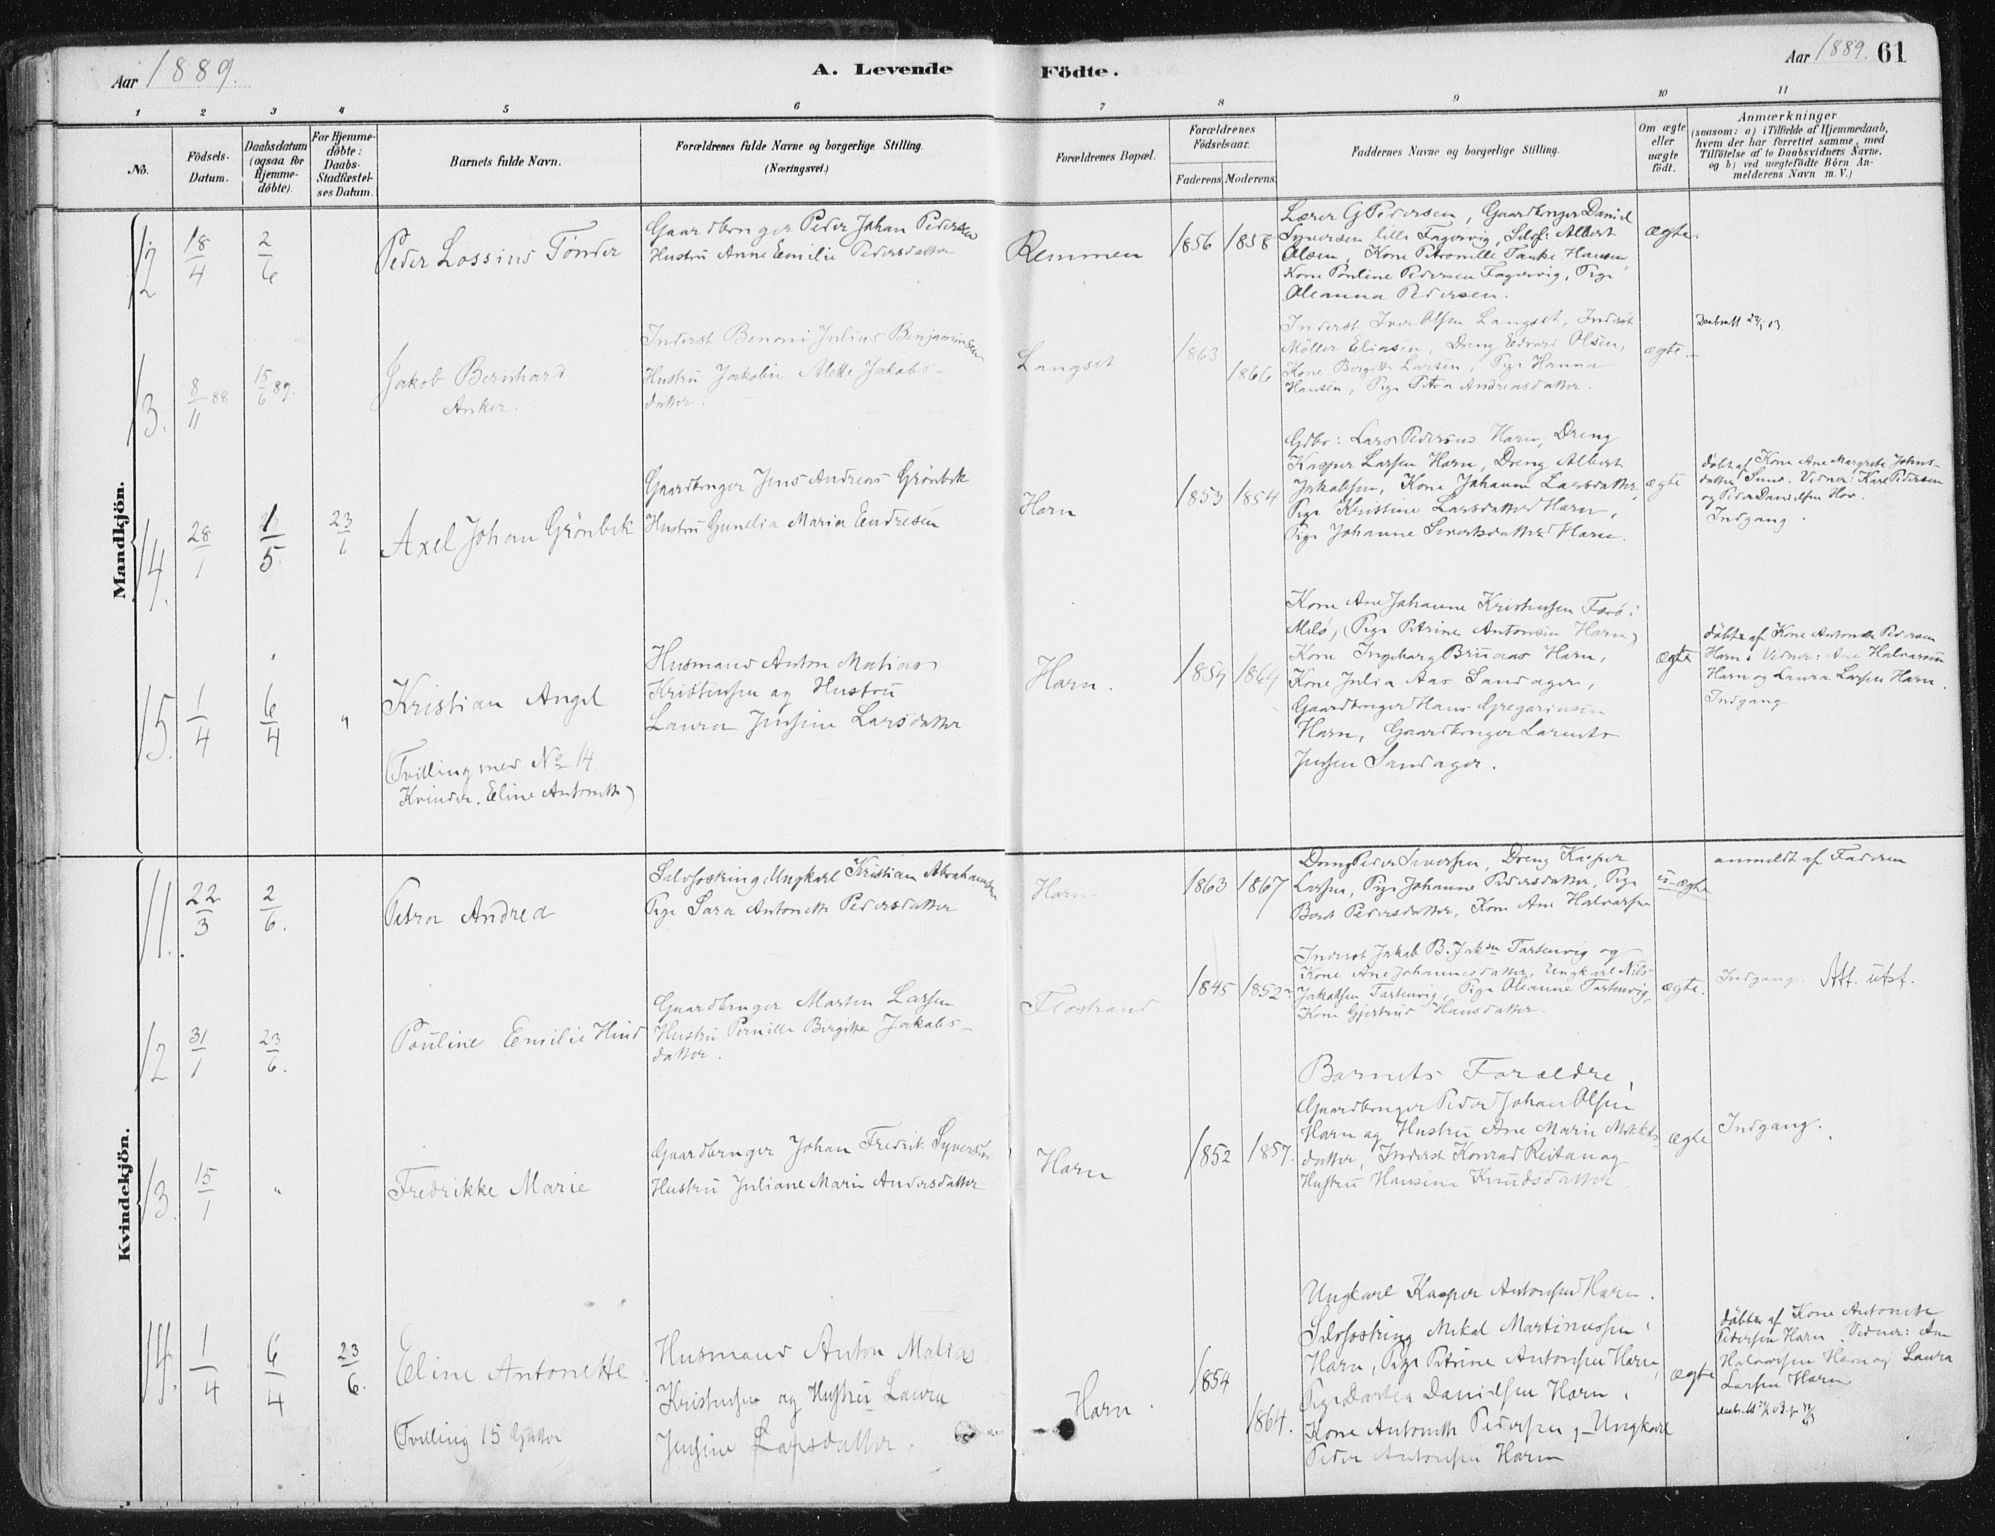 Aar 1889.
A. Levende
Födte.
Aar 1889. 61
1 2 3 4 5 6 7 8 9 10 11
No.
Födsels-
Datum.
Daabsdatum
(ogsaa for
Hjemme-
döbte).
For Hjemme-
döbte:
Daabs-
Stadfæstel-
ses Datum.
Barnets fulde Navn.
Forældrenes fulde Navne og borgerlige Stilling.
(Næringsvei.)
Forældrenes Bopæl.
Forældrenes
Födselsaar.
Faderens. Moderens.
Faddernes Navne og borgerlige Stilling.
Om ægte
eller
uægte
födt.
Anmærkninger
(saasom: a) i Tilfælde af Hjemmedaab,
hvem der har forrettet samme, med
Tilföielse af to Daabsvidners Navne.
og b) ved uægtefödte Börn An-
melderens Navn m. V.)
Mandkjön.
12
18/4
2/6
Peder Lossius Tönder
Gaardbruger Peder Johan Pedersen
Hustru Anne Emilie Pedersdatter
Remmen
1856 1858
Lærer G Pedersen, Gaardbruger Daniel
Syversen lille Fagervig, Selvf: Albert
Olsen, Kone Petronille Tanke Hansen,
Kone Pauline Pedersen Fagervig, Pige
Oleanna Pedersen.
ægte.
13.
8/11 88
15/6 89.
Jakob Bernhard
Anker.
Inderst Benoni Julius Benjaminsen
Hustru Jakobie Alette Jakobs-
datter.
Langset
1863
1866
Inderst Iver Olsen Langset, Inderst
Möller Eliasen, Dreng Edvard Olsen,
Kone Bergitte Larsen, Pige Hanna
Hansen, Pige Petra Andreasdatter.
ægte.
14.
28/1
1/5.
23/1
Axel Johan Grönbek
Gaardbruger Jens Andreas Grönbek
Hustru Gunelia Maria Endresen
Harn
1853 1854
Gdbr: Lars Pedersen Harn, Dreng
Kasper Larsen Harn, Dreng Albert
Jakobsen, Kone Johanna Larsdatter,
Pige Kristine Larsdatter Harn,
Pige Johanne Sivertsdatter Harn.
ægte
döbt af Kone Ane Margrete Johns-
datter Sund. Vidner: Karl Pedersen
og Peder Danielsen Hov.
Indgang.
15.
1/4
6/4
"
Kristian Angel
(Tvilling med No 14
Kvinder. Eline Antonette)
Husmand Anton Matias
Kristensen og Hustru
Laura Jensine Larsdatter
Harn.
1854 1864
Kone Ane Johanne Kristensen Farö i
Milö, (Pige Petrine Antonsen Harn)
Kone Ingeborg Brunaas Harn,
Kone Julia Aas Sandager,
Gaardbruger Hans Gregariusen
Harn, Gaardbruger Larents
Jensen Sandager.
ægte
döbt af Kone Antonette Pedersen
Harn. Vidner: Ane Halvorsen
Harn og Laura Larsen Harn.
Indgang
Kvindekjön.
11.
22/3
2/6.
Petra Andrea
Selvfostring, Ungkarl Kristian Abrahamsen
Pige Sara Antonette Pedersdatter
Harn
1863 1867
Dreng Peder Siversen, Dreng Kasper
Larsen, Pige Johanne Pedersdatter, Pige
Berit Pedersdatter, Kone Ane Halvorsen
u-ægte
anmeldt af Faderen
12
31/1
23/6.
Pauline Emilie Hind
Gaardbruger Martin Larsen
Hustru Pernille Birgitte Jakobs-
datter.
Flostrand
1845 1852
Inderst Jakob B. Jaksn Fartenvig og
Kone Ane Johannesdatter, Ungkarl Nils
Jakobsen Fartenvig, Pige Oleanne Fartenvig,
Kone Gjertrud Hansdatter.
ægte.
Indgang. Att. utst.
13.
15/1
"
Fredrikke Marie
Gaardbruger Johan Fredrik Syversen
Hustru Juliane Marie Andersdatter
Harn
1852 1857.
Barnets Forældre,
Gaardbruger Peder Johan Olsen
Harn og Hustru Ane Marie Mikkels-
datter, Inderst Konrad Reitan og
Hustru Hansine Knudsdatter
ægte
Indgang.
14.
1/4
6/4
23/6.
Eline Antonette
(Tvilling 15 Gutter
Husmand Anton Matias
Kristensen og Hustru Laura
Jensine Larsdatter.
Harn.
1854
1864.
Ungkarl Kasper Antonsen Harn.
Selvfostring Mikal Martinussen
Harn, Pige Petrine Antonsen Harn,
Pige Dortea Danielsen Harn,
Kone Antonette Pedersen, Ungkarl
Peder Antonsen Harn
ægte
döbt af Kone Antonette
Pedersen Harn. Vidner: Ane
Halvorsen Harn og Laura
Larsen Harn